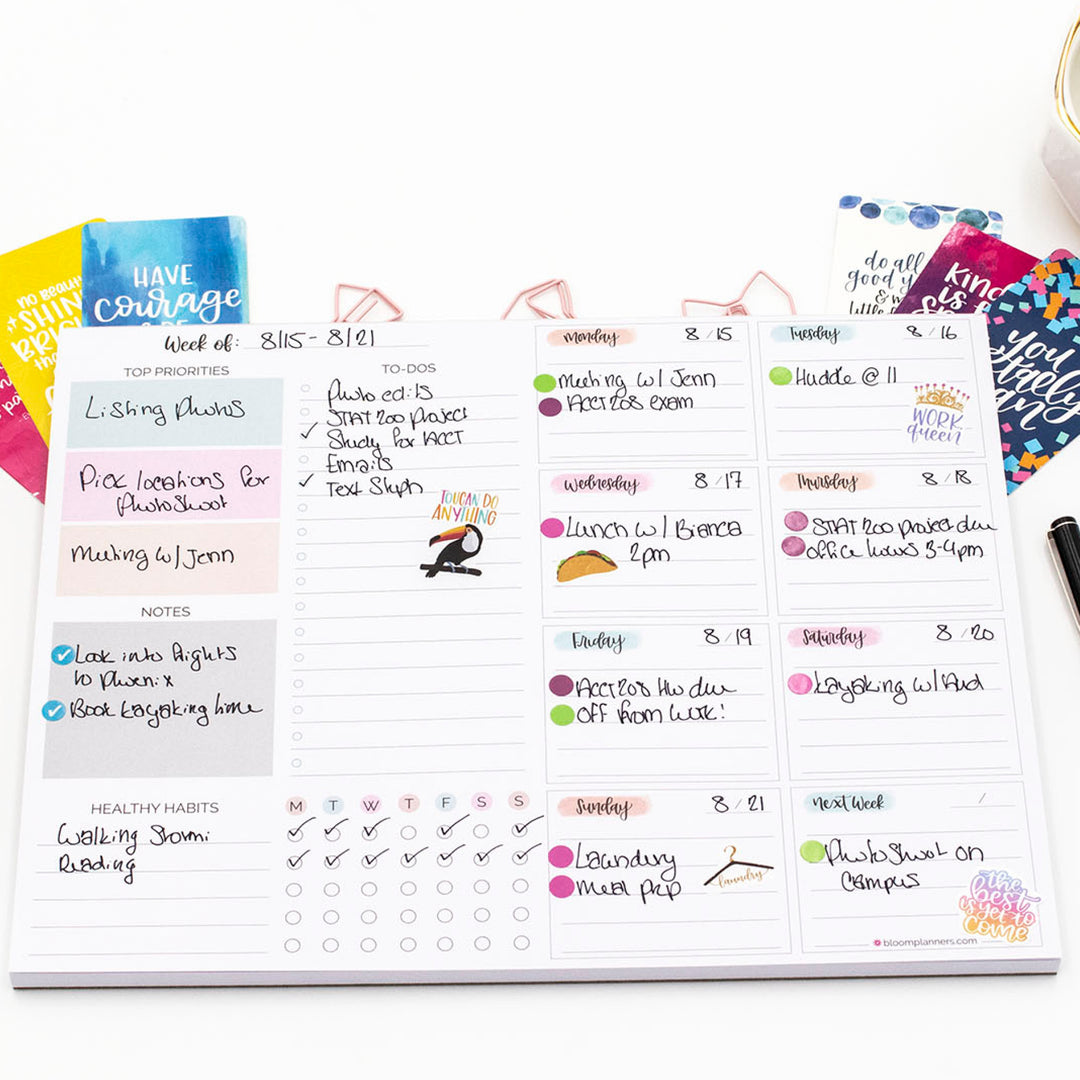 NO BEAUTY
SHINES
BRIGHTER
HAVE
courage
& BE
do all
good you
little
Kind
is
you
totally
Week of: 8/15 - 8/21
TOP PRIORITIES
Listing photos
Pick locations for
photoshoot
Meeting w/ Jenn
NOTES
Look into flights
to Phoenix
Book kayaking time
HEALTHY HABITS
Walking Stormi
Reading
TO-DOS
Photo edits
STAT 200 project
Study for ACCT
Emails
Text Steph
TOUCAN DO
ANYTHING
M T W T F S S
Monday 8/15
Meeting w/ Jenn
ACCT 208 exam
Tuesday 8/16
Huddle @ 11
WORK
queen
Wednesday 8/17
Lunch w/ Bianca
2pm
Thursday 8/18
STAT 200 project due
office hours 3-4pm
Friday 8/19
ACCT 208 HW due
OFF from work!
Saturday 8/20
Kayaking w/
Sunday 8/21
Laundry
Meal prep
laundry
Next Week /
Photoshoot on
campus
the
best
is yet to
come
bloomplanners.com